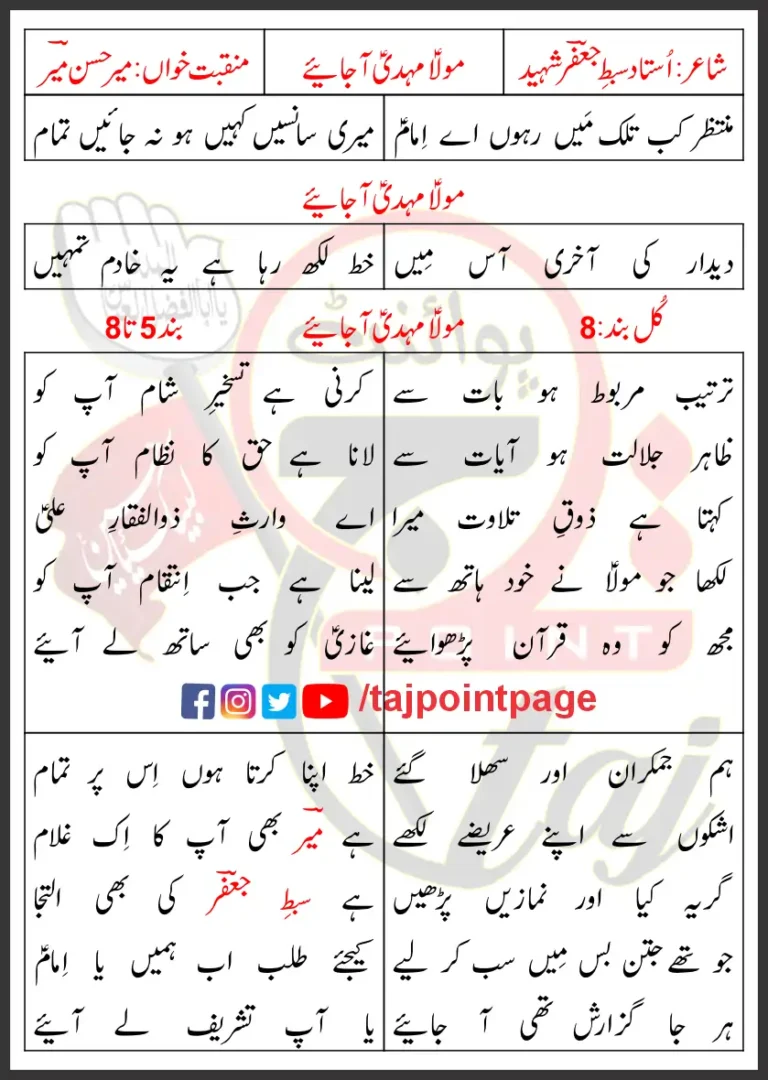 شاعر: اُستاد سبطِ جعفرؔ شہید
مولاؑ مہدیؑ آ جائیے
منقبت خواں: میر حسن میرؔ
منتظر کب تلک مَیں رہوں اے اِمامؑ
میری سانسیں کہیں ہو نہ جائیں تمام
مولاؑ مہدیؑ آ جائیے
دیدار کی آخری آس مِیں
خط لکھ رہا ہے یہ خادم تمہیں
کُل بند: 8
مولاؑ مہدیؑ آ جائیے
بند 5 تا 8
ترتیب مربوط ہو بات سے
ظاہر جلالت ہو آیات سے
کہتا ہے ذوقِ تلاوت میرا
لکھا جو مولاؑ نے خود ہاتھ سے
مجھ کو وہ قرآن پڑھوائیے
کرنی ہے تسخیرِ شام آپ کو
لانا ہے حق کا نظام آپ کو
اے وارثِ ذوالفقارِ علیؑ
لینا ہے جب اِنتقام آپ کو
غازیؑ کو بھی ساتھ لے آئیے
/tajpointpage
ہم جمکران اور سھلا گئے
اشکوں سے اپنے عریضے لکھے
گریہ کیا اور نمازیں پڑھیں
جو تھے جتن بس مِیں سب کر لیے
ہر جا گزارش تھی آ جائیے
خط اپنا کرتا ہوں اِس پر تمام
ہے میرؔ بھی آپ کا اِک غلام
ہے سبطِ جعفرؔ کی بھی التجا
کیجئے طلب اب ہمیں یا اِمامؑ
یا آپ تشریف لے آئیے
پوائنٹ
POINT
taj